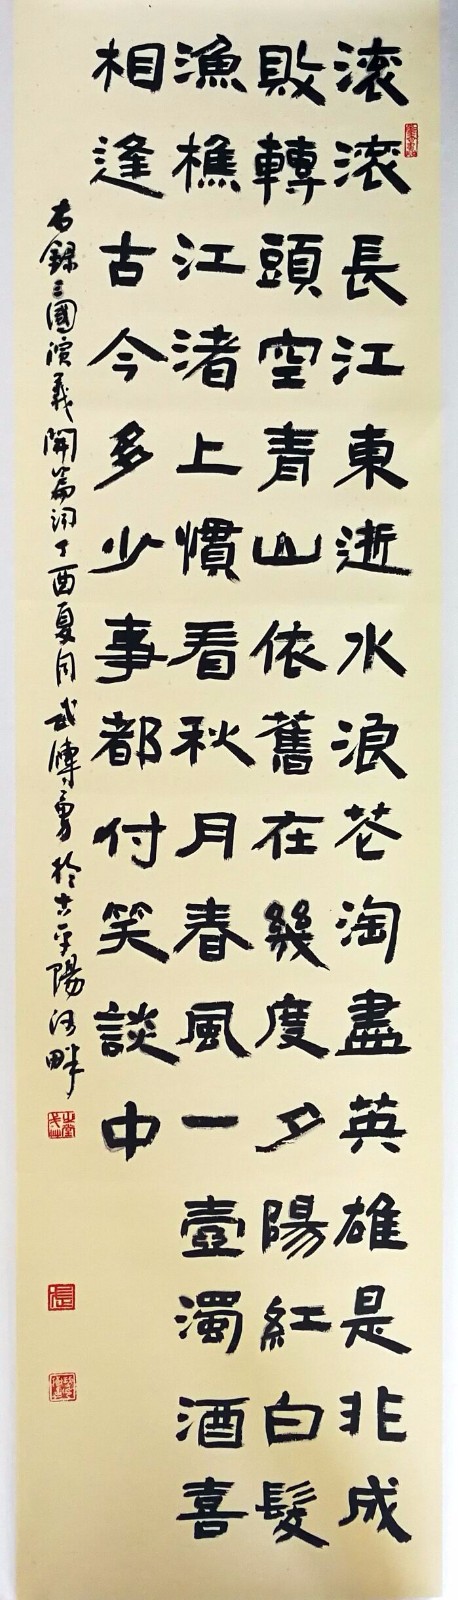 滚滚長江東逝水浪花淘盡英雄是非成
敗轉頭空青山依舊在幾度夕陽紅白髮
漁樵江渚上慣看秋月春風一壺濁酒喜
相逢古今多少事都付笑談中
右錄三國演義開篇詞丁酉夏月武傳勇於古平陽畔